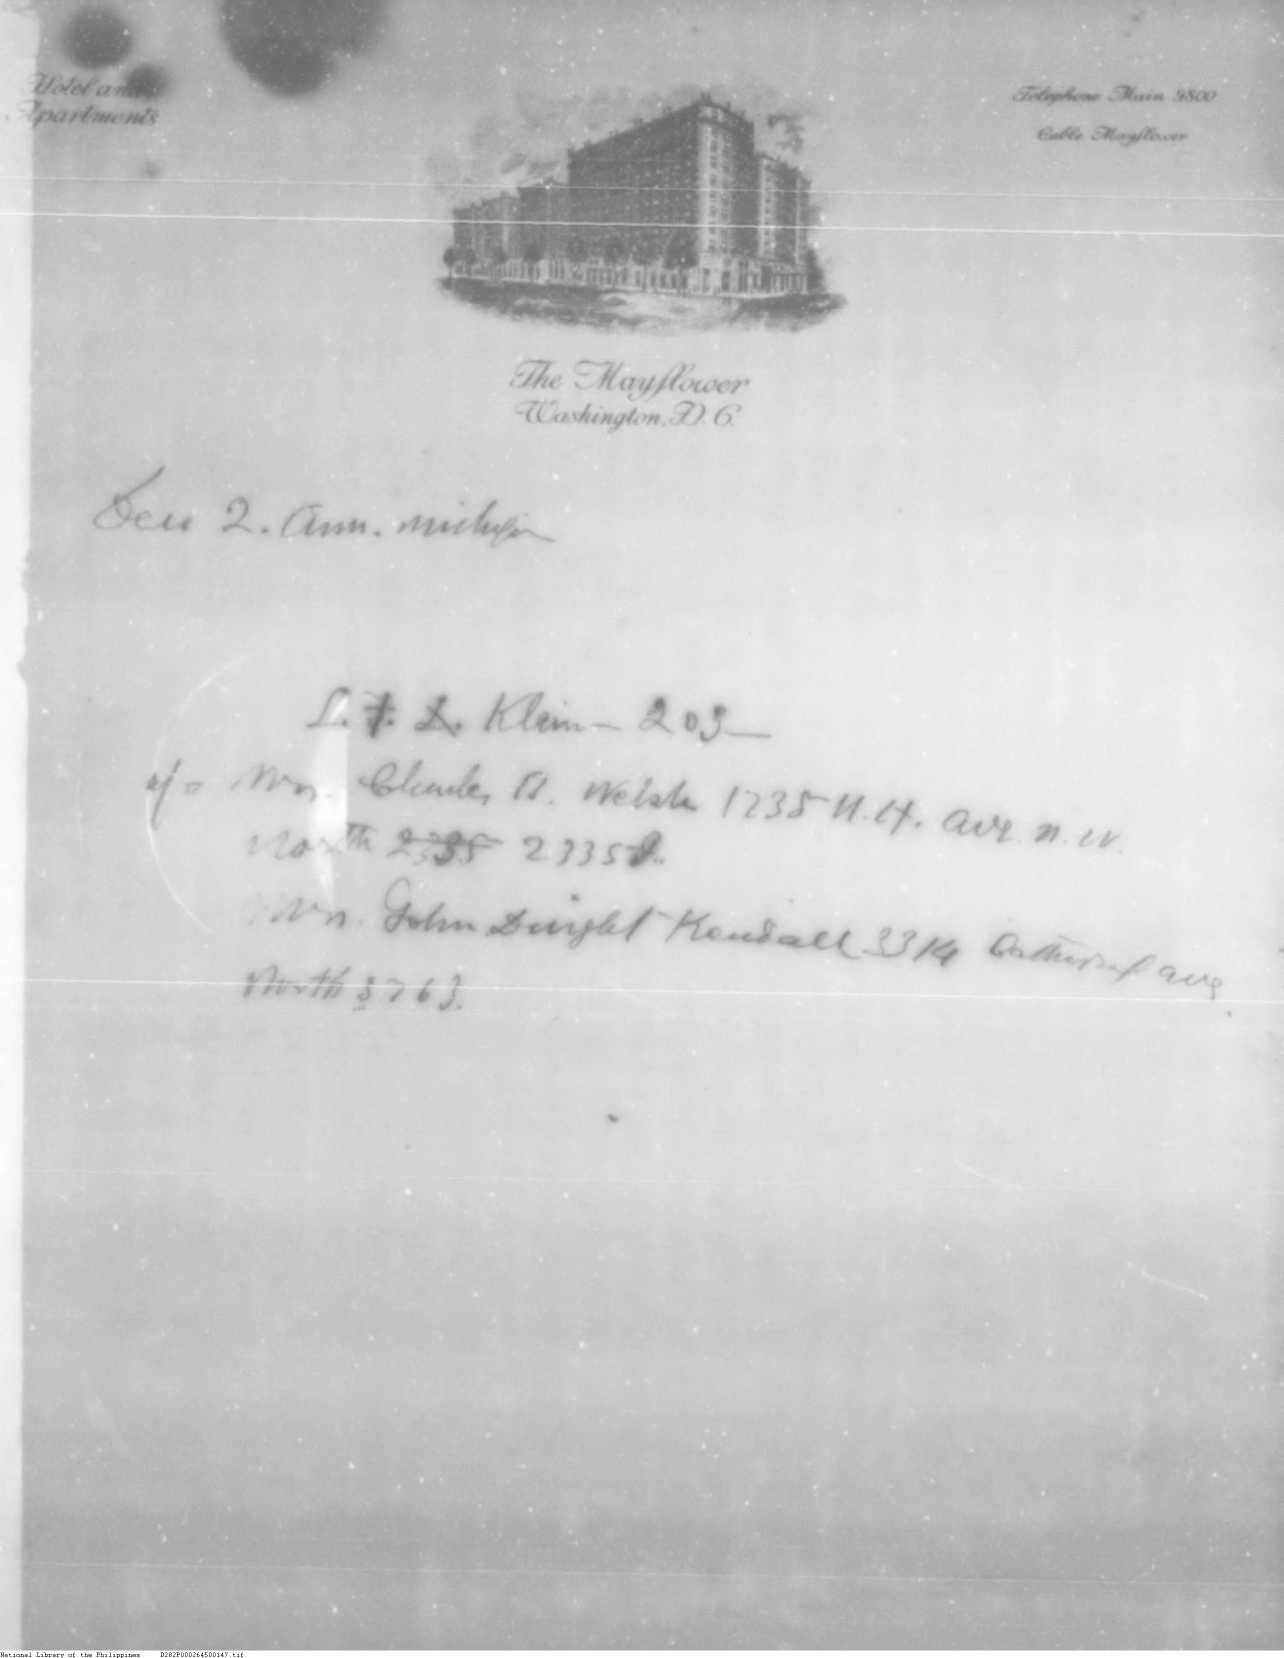 Hotel and
Apartments
Telephone Main 9800
Cable Mayflower
The Mayflower
Washington, D. C.
2. Ann. Michigan
L. Klein - 203 -
Mrs. Charles B. Welsh 1735 N.H. Ave N.W.
North 2335
Mrs. John Dwight Kendall 3314 Cathedral Ave
North 3763.
National Library of the Philippines D282P000264500147.tif